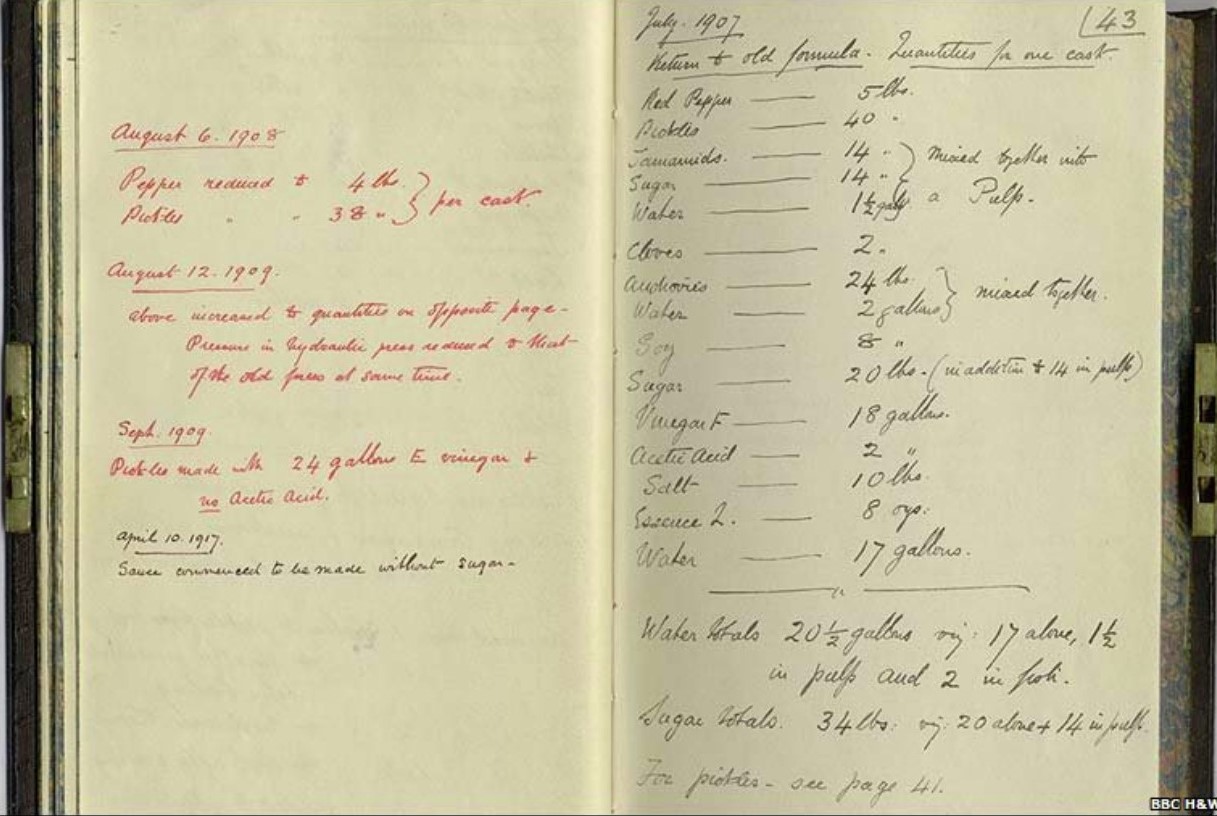 August 6. 1908
Pepper reduced to 4 lbs. } per cast
Pickles " " 38 "
August 12. 1909.
above increased to quantities on opposite page -
Pressure in hydraulic press reduced to that
of the old press at same time.
Sept. 1909.
Pickles made with 24 gallons E vinegar &
no Acetic Acid.
April 10. 1917.
Sauce commenced to be made without Sugar -
43
July. 1907
Return to old formula. Quantities for one cast.
Red Pepper — 5 lbs.
Pickles — 40 "
Tamarinds. — 14 " } mixed together into
Sugar — 14 "
Water — 1½ galls. a Pulp.
Cloves — 2 "
Anchovies — 24 lbs. } mixed together.
Water — 2 gallons
Soy — 8 "
Sugar — 20 lbs - (in addition to 14 in pulp)
Vinegar E — 18 gallons.
Acetic Acid — 2 "
Salt — 10 lbs.
Essence L. — 8 ozs:
Water — 17 gallons.
"
Water totals 20½ gallons viz: 17 alone, 1½
in pulp and 2 in fish.
Sugar totals. 34 lbs: viz: 20 alone + 14 in pulp.
For pickles - see page 41.
BBC H&W